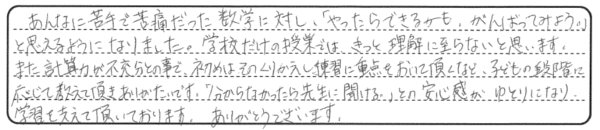 あんなに苦手で苦痛だった数学に対し、「やったらできるかも。がんばってみよう。」
と思えるようになりました。学校だけの授業では、きっと理解に至らないと思います。
また計算力が不充分との事で、初めはそのくりかえし練習に重点をおいて頂くなど、子どもの段階に
応じて教えて頂きありがたいです。「分からなかったら先生に聞ける。」との安心感が、ゆとりになり
学習を支えて頂いております。ありがとうございます。